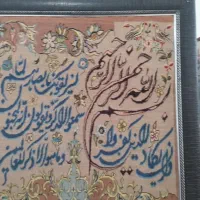 بسم الله الرحمن الرحيم
وان يكاد الذين كفروا
ليزلقونك بابصارهم
سمعوا الذكر ويقولون انه
وما هو الا ذكر للعالمين